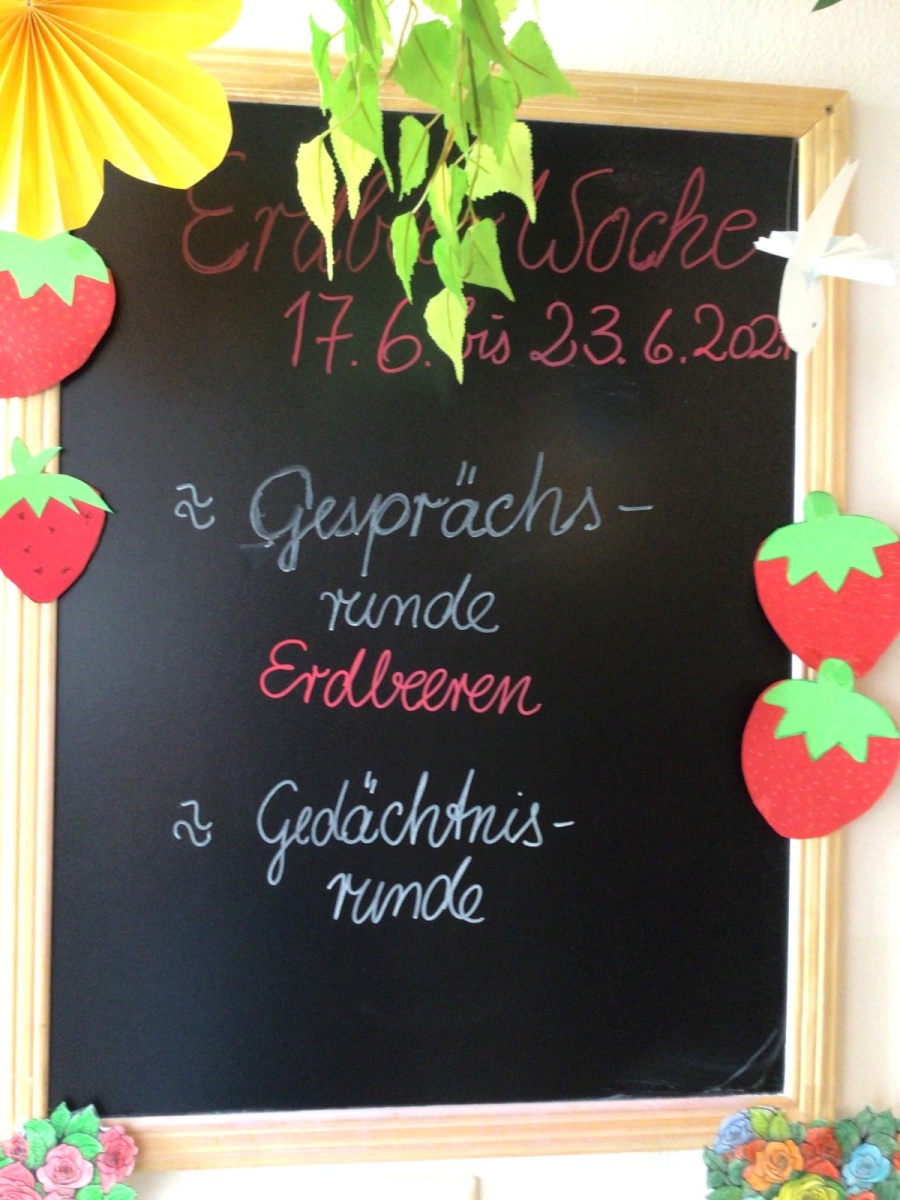 Erdbeer Woche
17.6. bis 23.6.202
~ Gesprächs-
runde
Erdbeeren
~ Gedächtnis-
runde